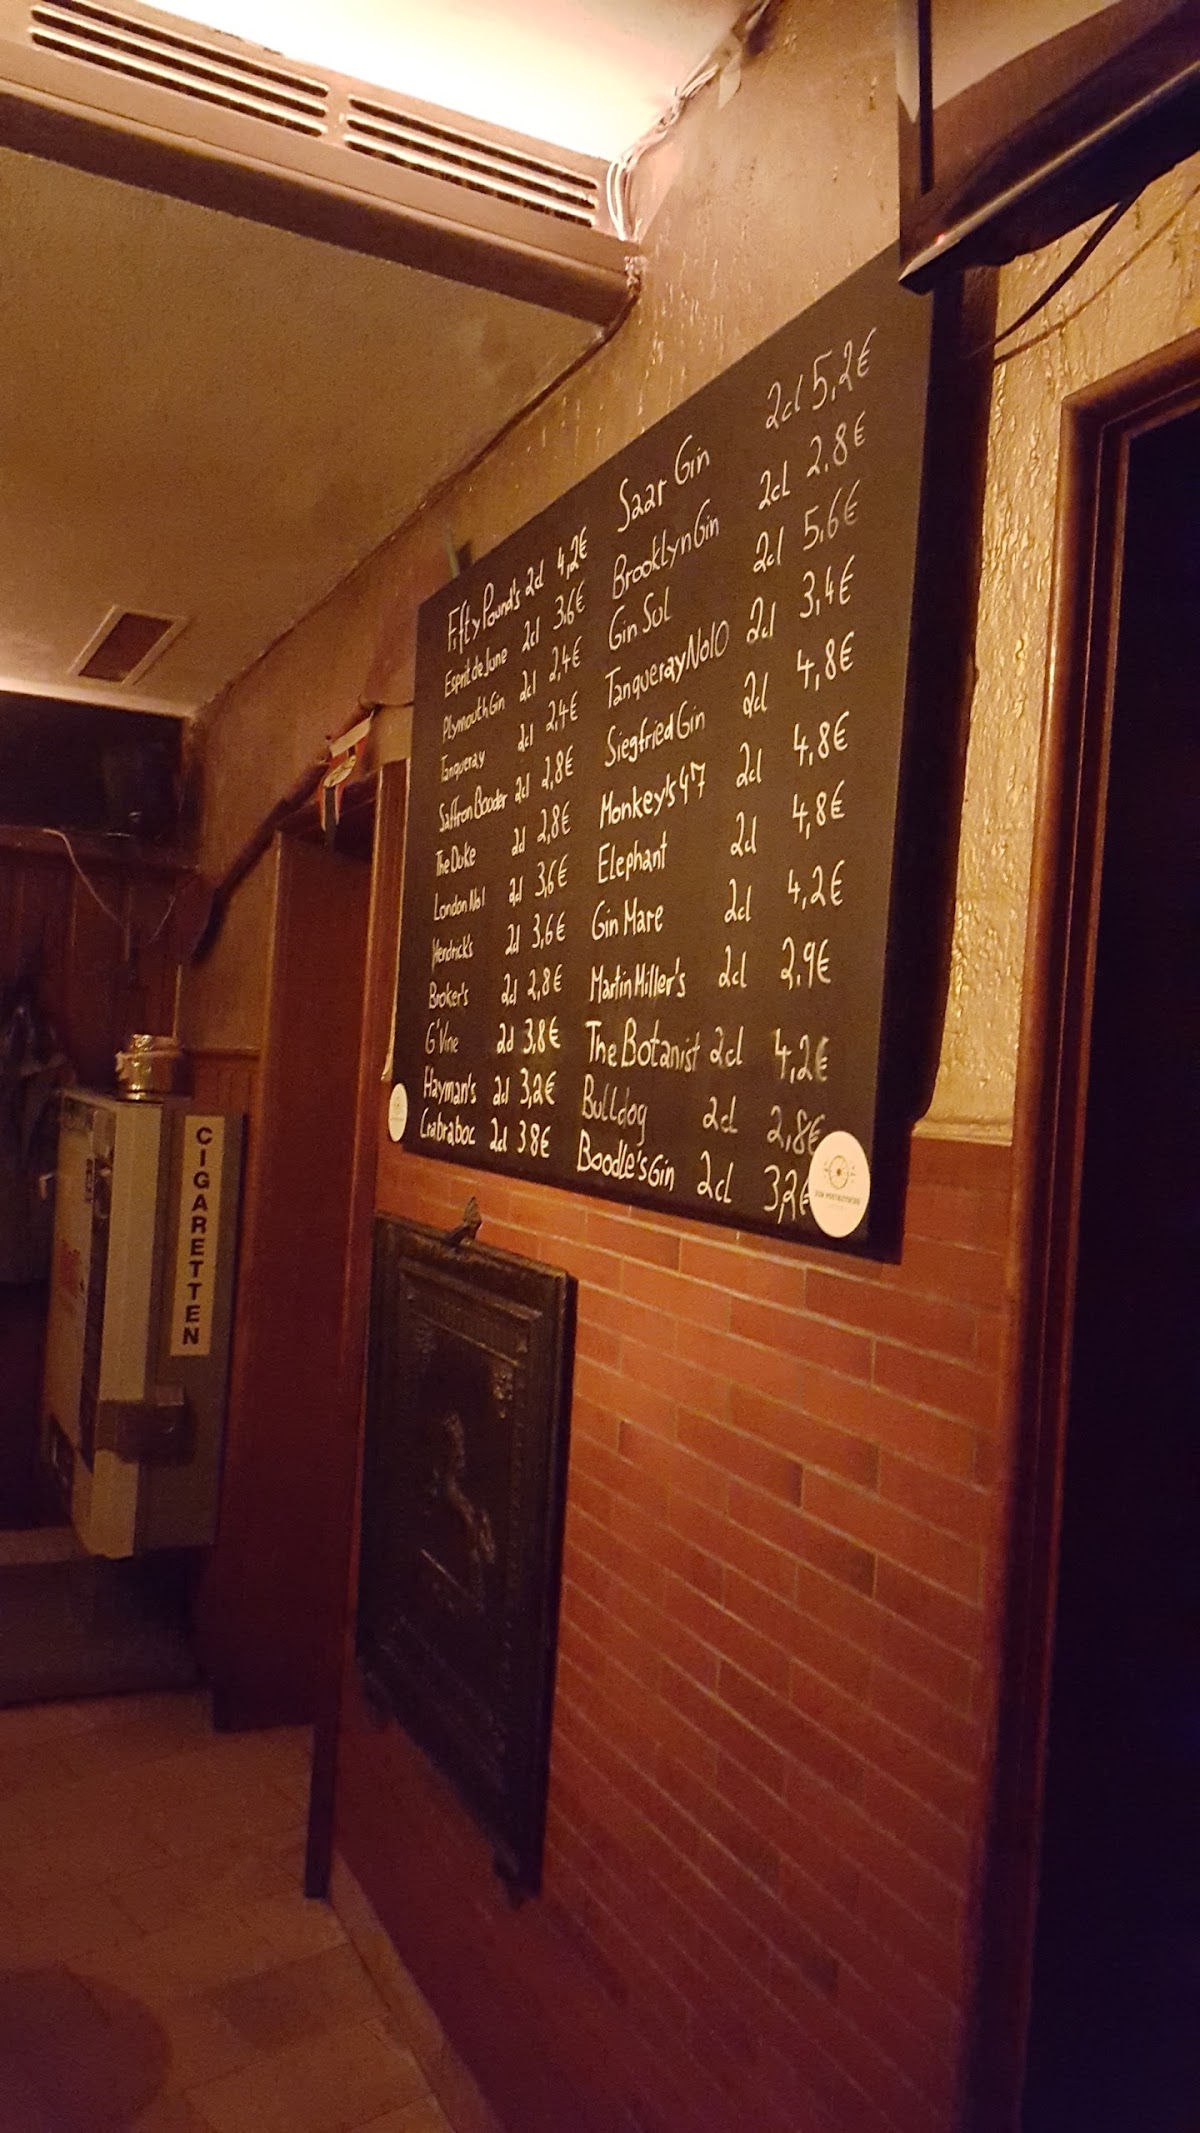 Fifty Pound's 2cl 4,2€
Esprit de June 2cl 3,6€
Plymouth Gin 2cl 2,4€
Tanqueray 2cl 2,4€
Saffron Booder 2cl 2,8€
The Duke 2cl 2,8€
London No1 2cl 3,6€
Hendrick's 2cl 3,6€
Broker's 2cl 2,8€
G'Vine 2cl 3,8€
Hayman's 2cl 3,2€
Crabraboc 2cl 3 8€
Saar Gin 2cl 5,2€
Brooklyn Gin 2cl 2.8€
Gin Sul 2cl 5,6€
Tanqueray No10 2cl 3,4€
Siegfried Gin 2cl 4,8€
Monkey's 47 2cl 4,8€
Elephant 2cl 4,8€
Gin Mare 2cl 4,2€
Martin Miller's 2cl 2,9€
The Botanist 2cl 4,2€
Bulldog 2cl 2,8€
Boodle's Gin 2cl 3,2€
CIGARETTEN